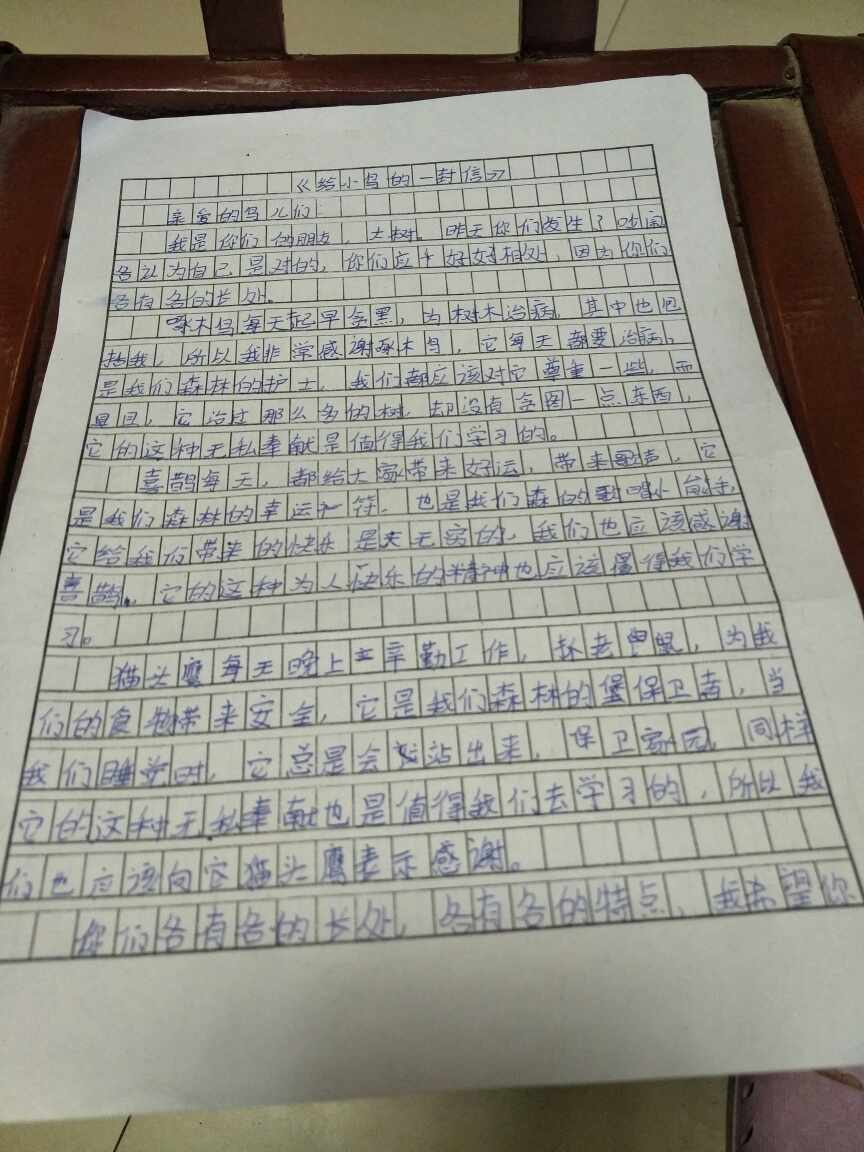 《给小鸟的一封信》
亲爱的鸟儿们:
我是你们的朋友,大树。昨天你们发生了
各认为自己是对的,你们应十好好相处,因为你们
各有各的长处。
啄木鸟每天起早贪黑,为树木治病,其中也包
括我,所以我非常感谢啄木鸟,它每天都要治病,
是我们森林的护士,我们都应该对它尊重一些,而
且,它治过那么多的树,却没有贪图一点东西,
它的这种无私奉献是值得我们学习的。
喜鹊每天,都给大家带来好运,带来歌声,它
是我们森林的幸运符,也是我们森的歌唱小能手,
它给我们带来的快乐是无穷的,我们也应该感谢
喜鹊。它的这种为人快乐的精神也应该值得我们学
习。
猫头鹰每天晚上辛勤工作,抓老鼠,为我
们的食物带来安全,它是我们森林的保卫者,当
我们睡觉时,它总是会站出来,保卫家园,同样
它的这种无私奉献也是值得我们去学习的,所以我
们也应该向它猫头鹰表示感谢。
你们各有各的长处,各有各的特点,我希望你